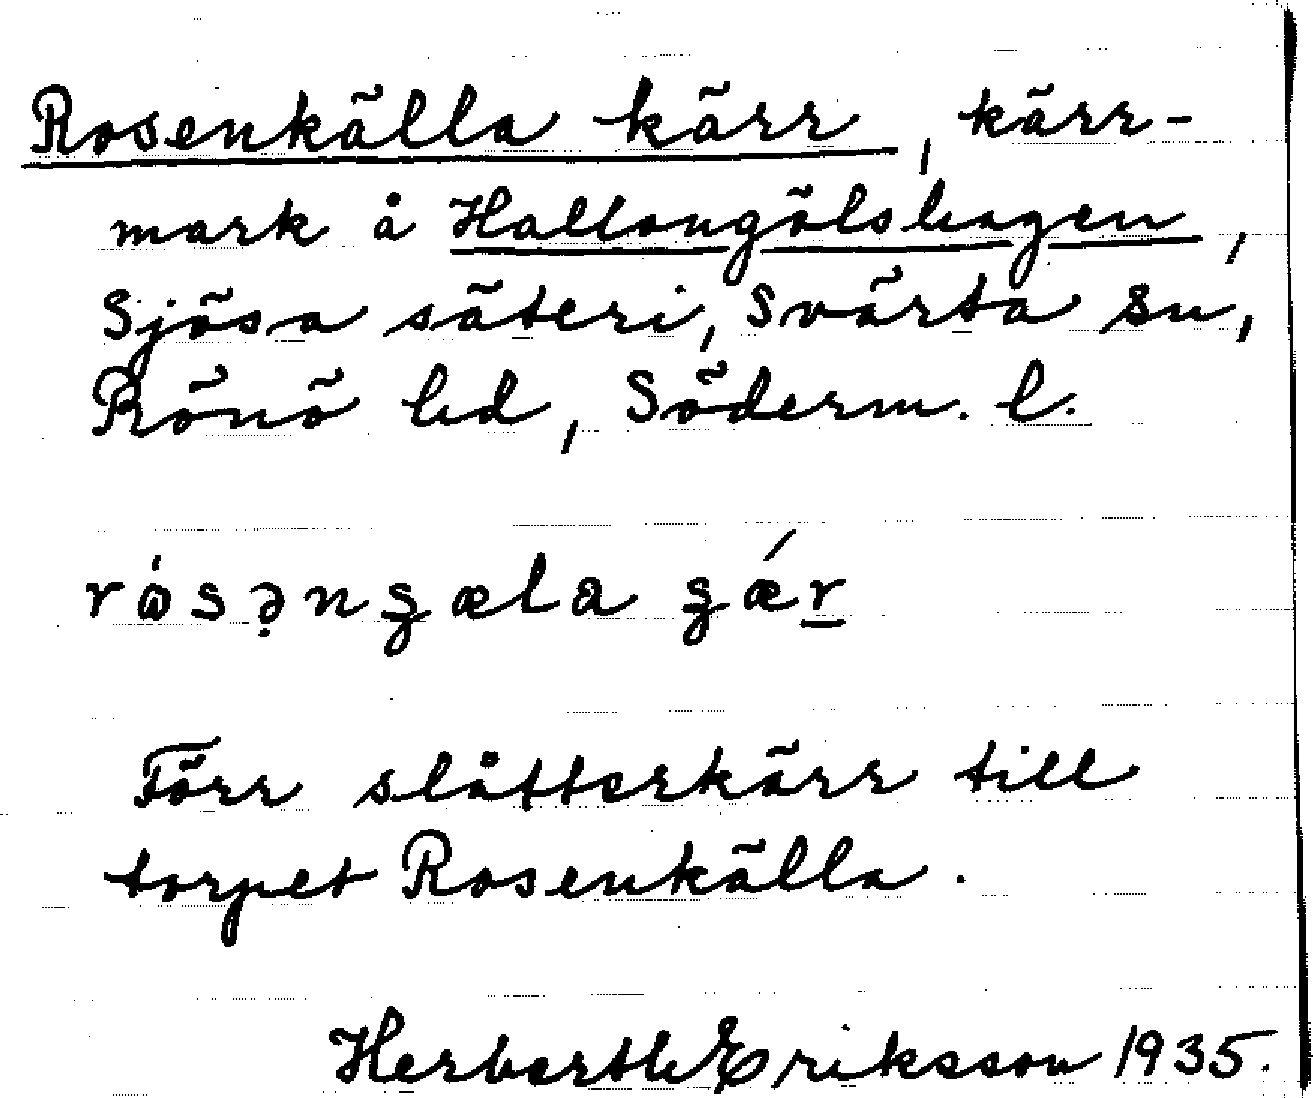 Rosenkälla kärr, kärr-
mark å Hallongölshagen,
Sjösa säteri, Svärta sn,
Rönö hd, Söderm. l.
Förr slåtterkärr till
torpet Rosenkälla.
Herberth Eriksson 1935.